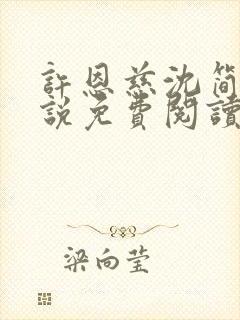 許恩慈沈簡
說免費閱讀
梁向莹